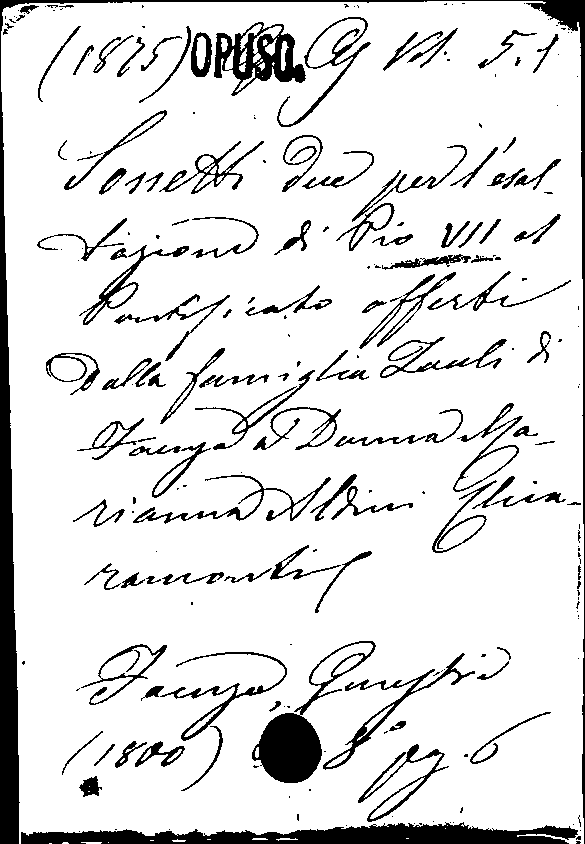 (1875) OPUSC. VI. 5.1
Sonetti due per l'esal-
tazione di Pio VII al
Pontificato offerti
dalla famiglia Zauli di
Faenza a Donna Ma-
rianna Aldini Chia-
ramonti
Faenza,
(1800) 8° pg. 6